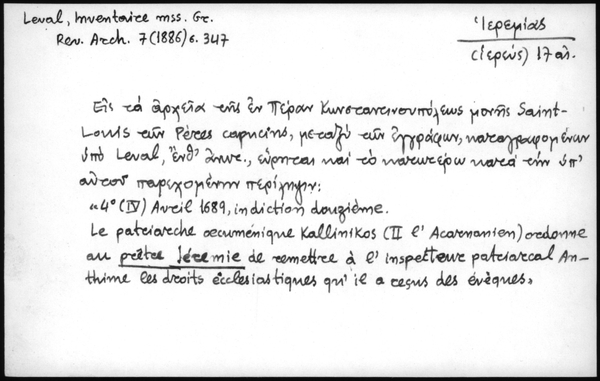 Leval, Inventaire mss. Gr.
Rev. Arch. 7 (1886) σ. 347
Ἱερεμίας
(ἱερεύς) 17 αἰ.
Εἰς τὰ ἀρχεῖα τῆς ἐν Πέραν Κωνσταντινουπόλεως μονῆς Saint-
Louis τῶν Pères capucins, μεταξὺ τῶν ἐγγράφων, καταγραφομένων
ὑπὸ Leval, ἔνθ' ἀνωτ., εὕρηται καὶ τὸ κατωτέρω κατὰ τὴν ὑπ'
αὐτοῦ παρεχομένην περίληψιν:
«4° (IV) Avril 1689, indiction douzième.
Le patriarche œcuménique Kallinikos (II l'Acarnanien) ordonne
au prêtre Jérémie de remettre à l'inspecteur patriarcal An-
thime les droits ecclésiastiques qu'il a reçus des évèques»